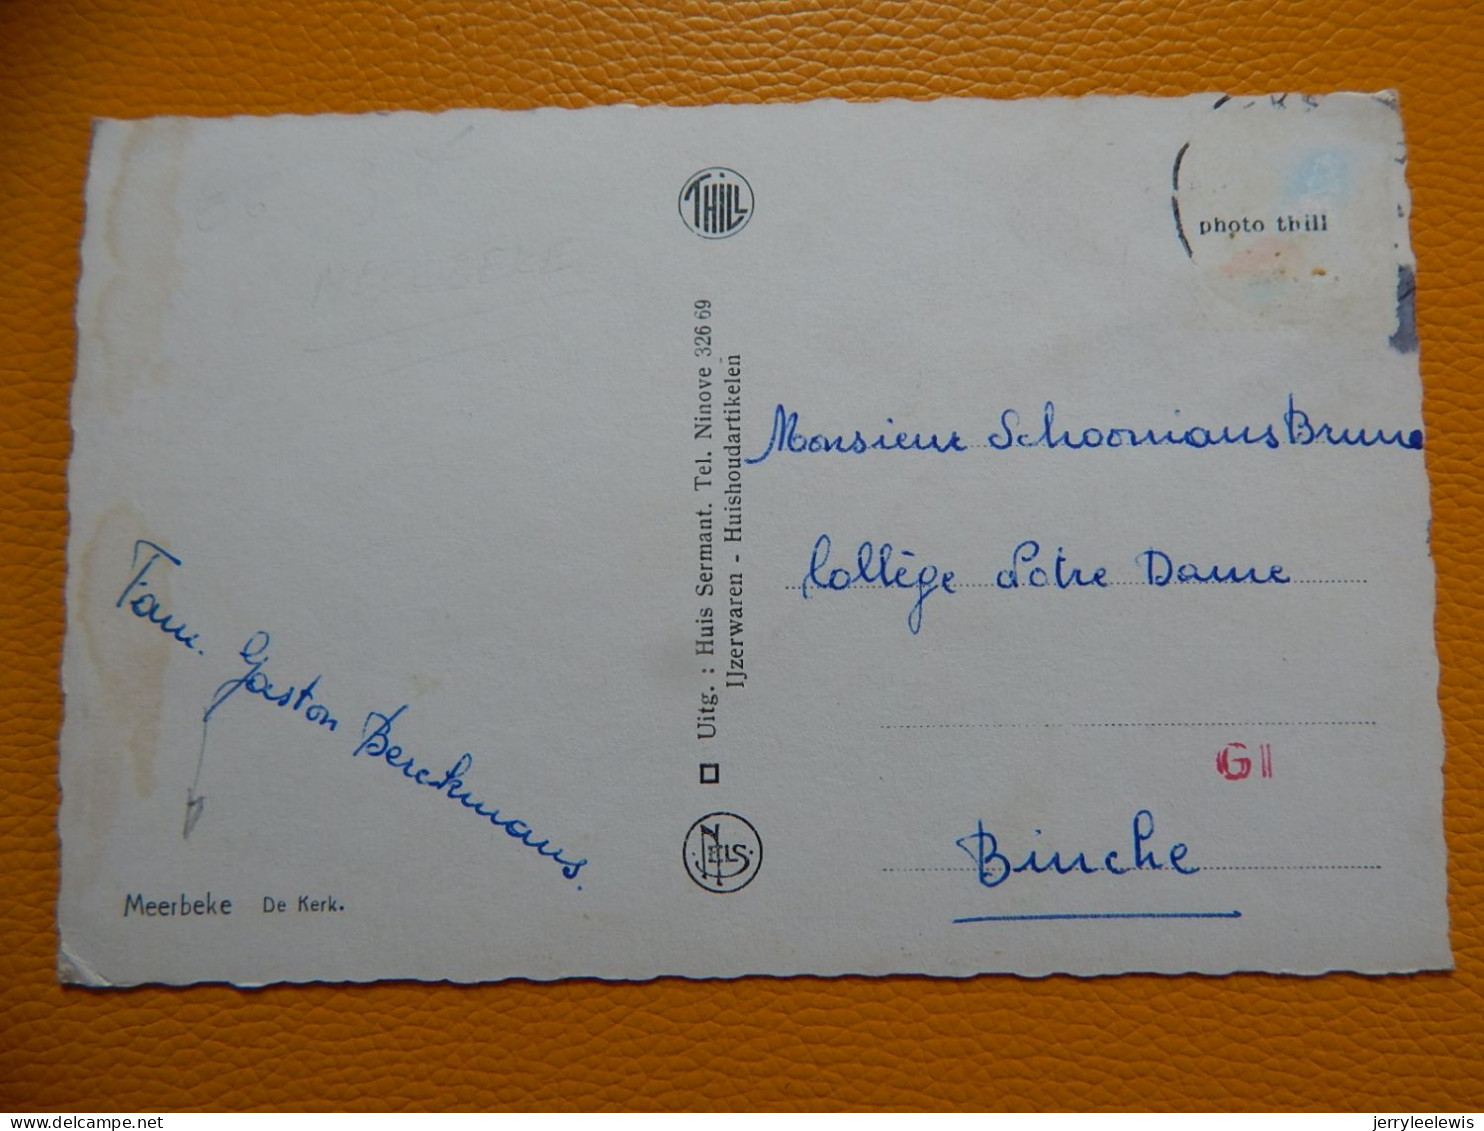 THILL
photo thill
MEERBEKE
Uitg. : Huis Sermant. Tel. Ninove 326 69
IJzerwaren - Huishoudartikelen
Monsieur Schoonians Bruno
Collège Notre Dame
GI
Binche
Fam. Gaston Berckmans.
NELS
Meerbeke De Kerk.
jerryleelewis